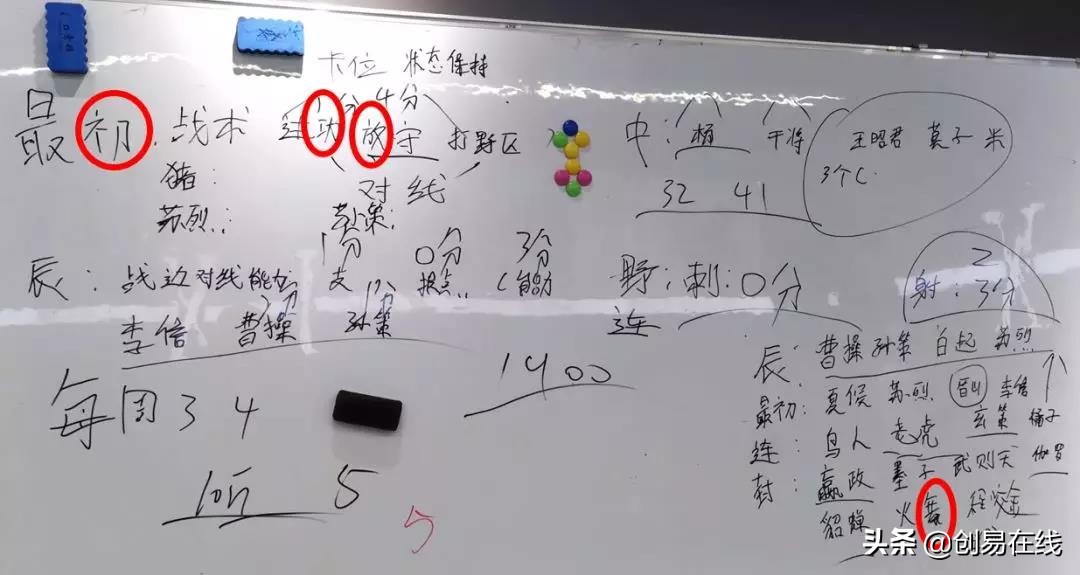 卡位 状态保持
1分 4分
最初 战术 连 功 放守 打野区
中: 杨 干将 王昭君 莫子 米
3个C
猪:
对线
32 41
苏烈: 苏策:
1分 0分 3分
辰: 战边对线能力 支 报点 C能力
野: 刺: 0分
2
射: 3分
2分 1分
李信 曹操 孙策
连
1400
辰: 曹操 孙策 白起 苏烈
每周 3 4
最初: 夏候 苏烈 李信
连: 鸟人 老虎 玄策 橘子
封: 嬴政 墨子 武则天 伽罗
105斤 5
貂蝉 火舞 程咬金
5
头条 @创易在线